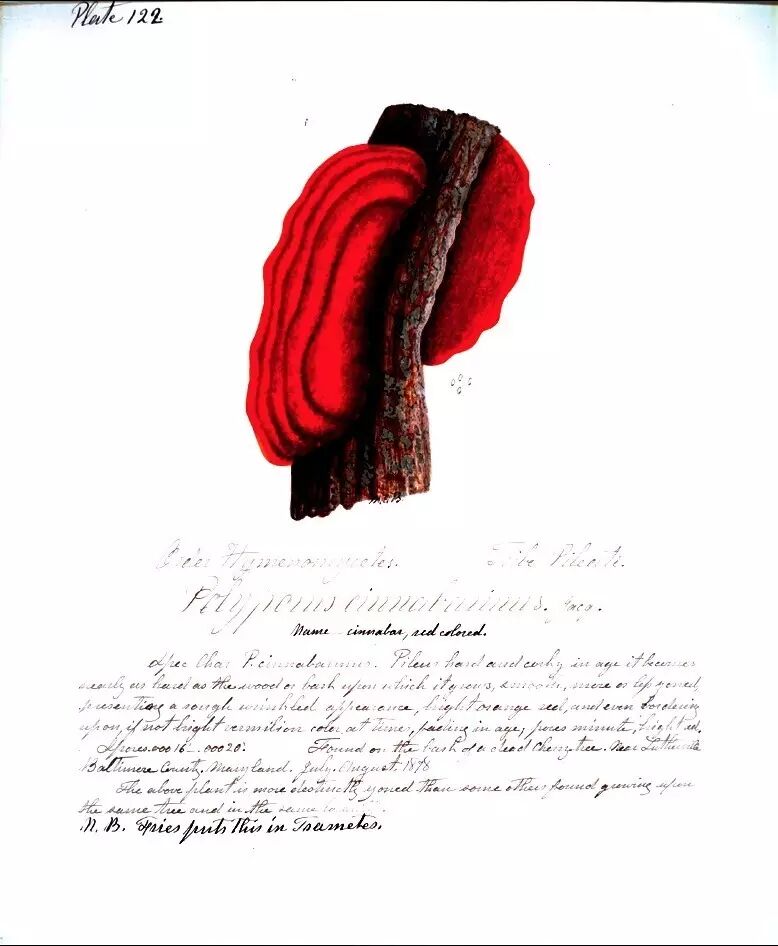 Plate 122.
M.E.B.
Order Hymenomycetes. Tribe Pileati.
Polyporus cinnabarinus. Jacq.
Name – cinnabar, red colored.
Spec Char P. cinnabarinus. Pileus hard and corky in age it becomes
nearly as hard as the wood or bark upon which it grows, smooth, more or less zoned,
presenting a rough wrinkled appearance, bright orange red, and even bordering
upon, if not bright vermilion color at time, fading in age, pores minute, bright red.
Spores .00016–.00020. Found on the bark of a dead Cherry tree. Near Lutherville
Baltimore County. Maryland. July. August. 1878
The above plant is more distinctly zoned than some others found growing upon
the same tree and in the same
N. B. Fries puts this in Trametes.